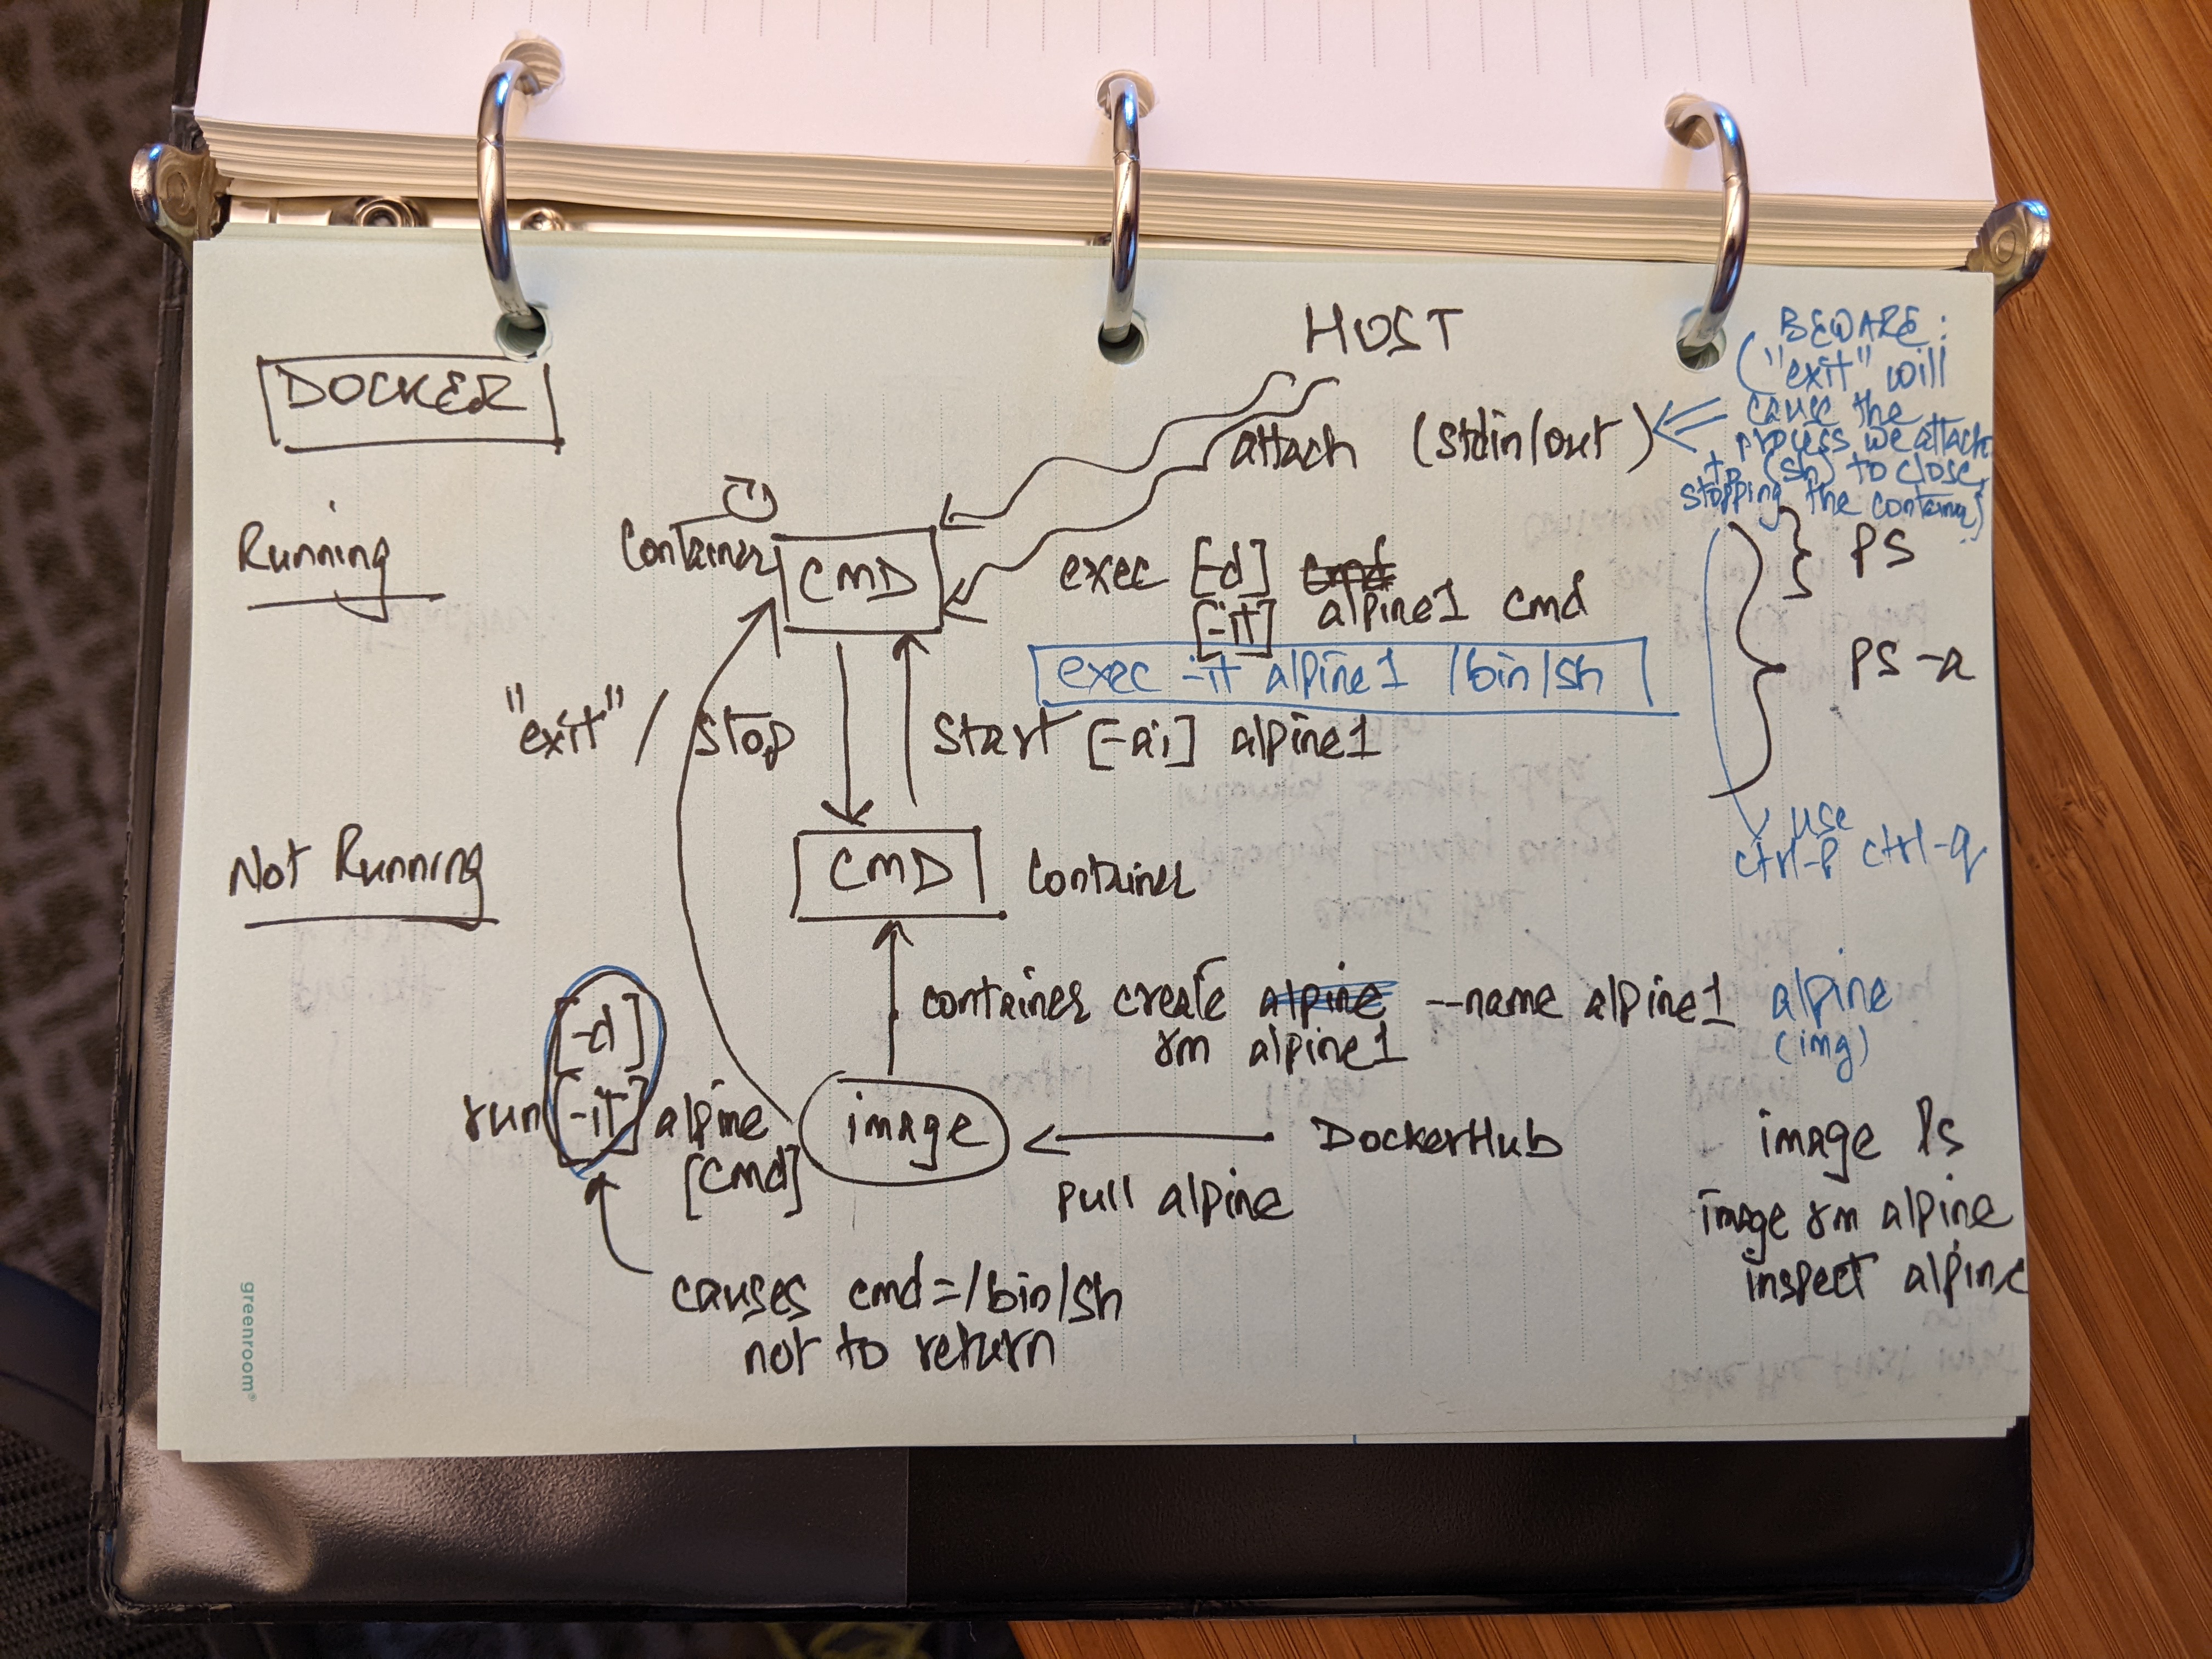 HOST
DOCKER
BEWARE:
("exit" will
cause the
process we attach
to (sh) to close,
stopping the container)
attach (stdin/out)
Running
Container
CMD
exec [-d] cmd
[-it] alpine1 cmd
exec -it alpine1 /bin/sh
ps
ps -a
"exit" / stop
start [-ai] alpine1
use
ctrl-p ctrl-q
Not Running
CMD
Container
container create alpine --name alpine1 alpine
rm alpine1
(img)
[-d]
run [-it] alpine
[cmd]
image
DockerHub
pull alpine
image ls
image rm alpine
inspect alpine
causes cmd=/bin/sh
not to return
greenroom®